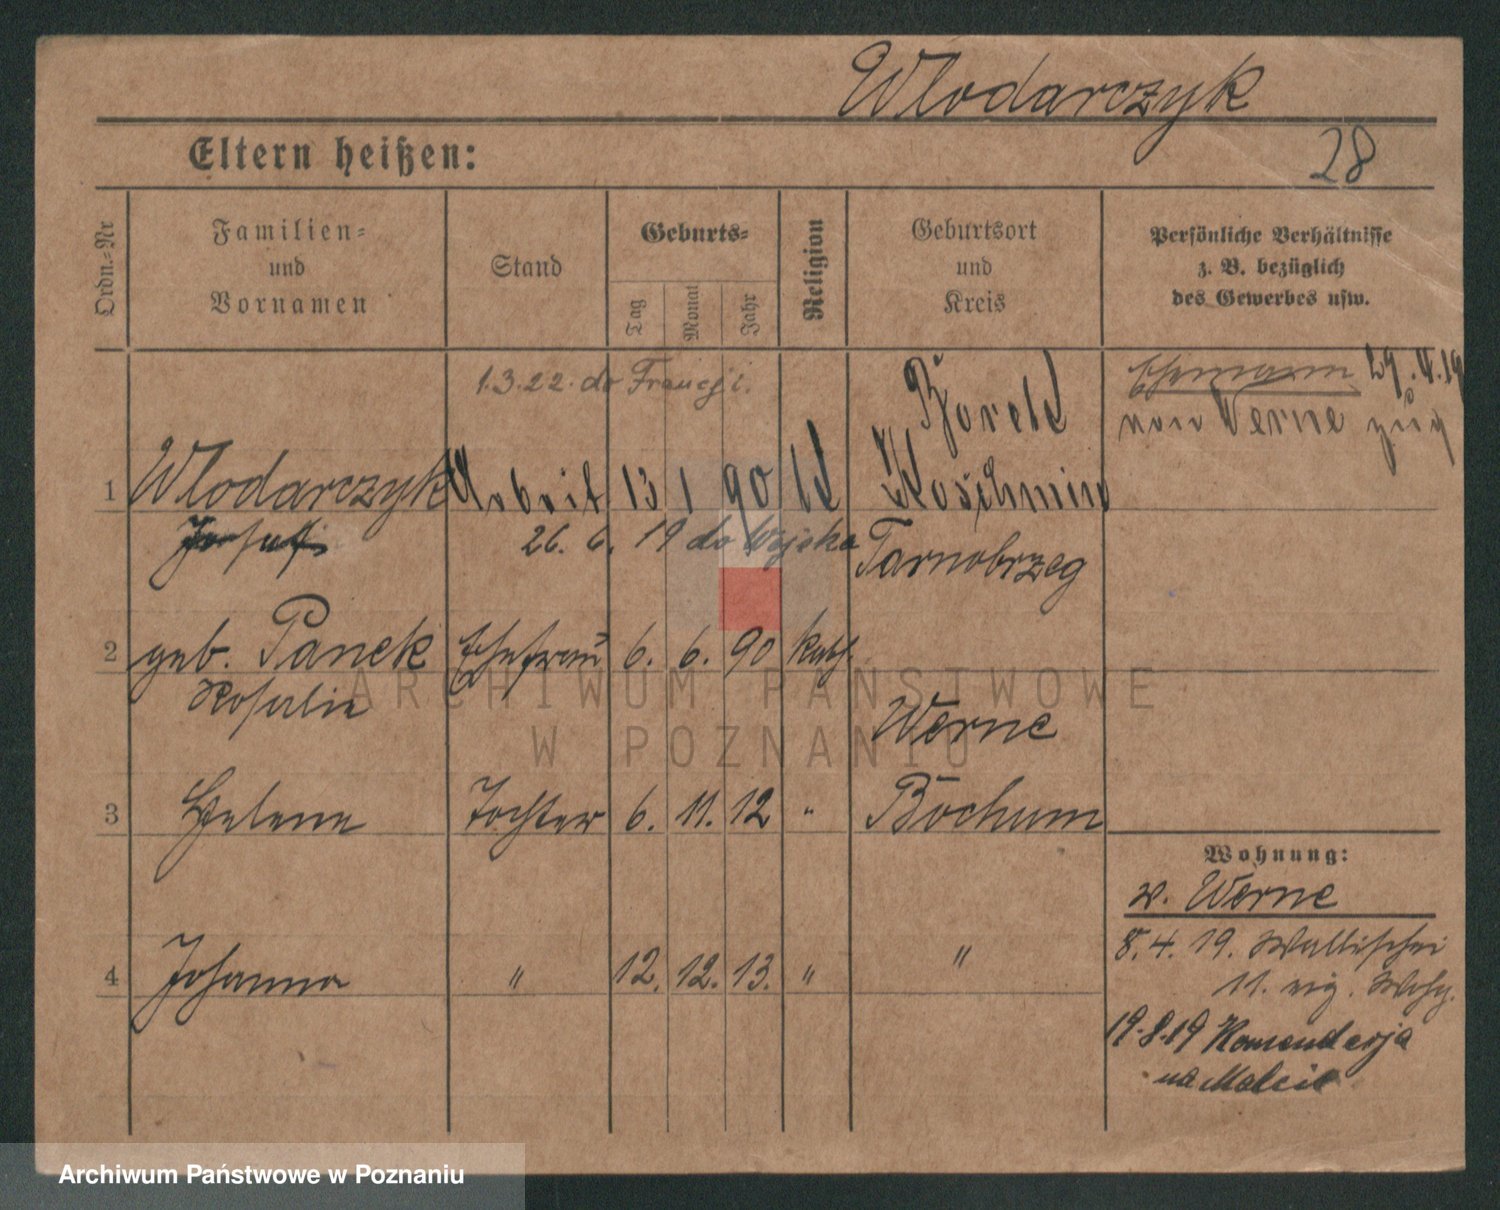 Wlodarczyk
Eltern heißen:
28
Ordn.-Nr
Familien-
und
Vornamen
Stand
Geburts-
Tag
Monat
Jahr
Religion
Geburtsort
und
Kreis
Persönliche Verhältnisse
z. B. bezüglich
des Gewerbes usw.
1.3.22. do Francji.
Borek
Ehemann 29.
von Werne zug
1 Wlodarczyk Arbeit 13 1 90 kt Koschmin
Josef
26. 6. 19 do wojska
Tarnobrzeg
2 geb. Panek Ehefrau 6. 6. 90 kath.
Rosalie
Werne
3 Helene Tochter 6. 11. 12 " Bochum
Wohnung:
v. Werne
8. 4. 19. Wallischei
11. eig. Wohg.
4 Johanna " 12. 12. 13. " "
19.8.19 Komenderja
na Malcie
ARCHIWUM PAŃSTWOWE
W POZNANIU
Archiwum Państwowe w Poznaniu